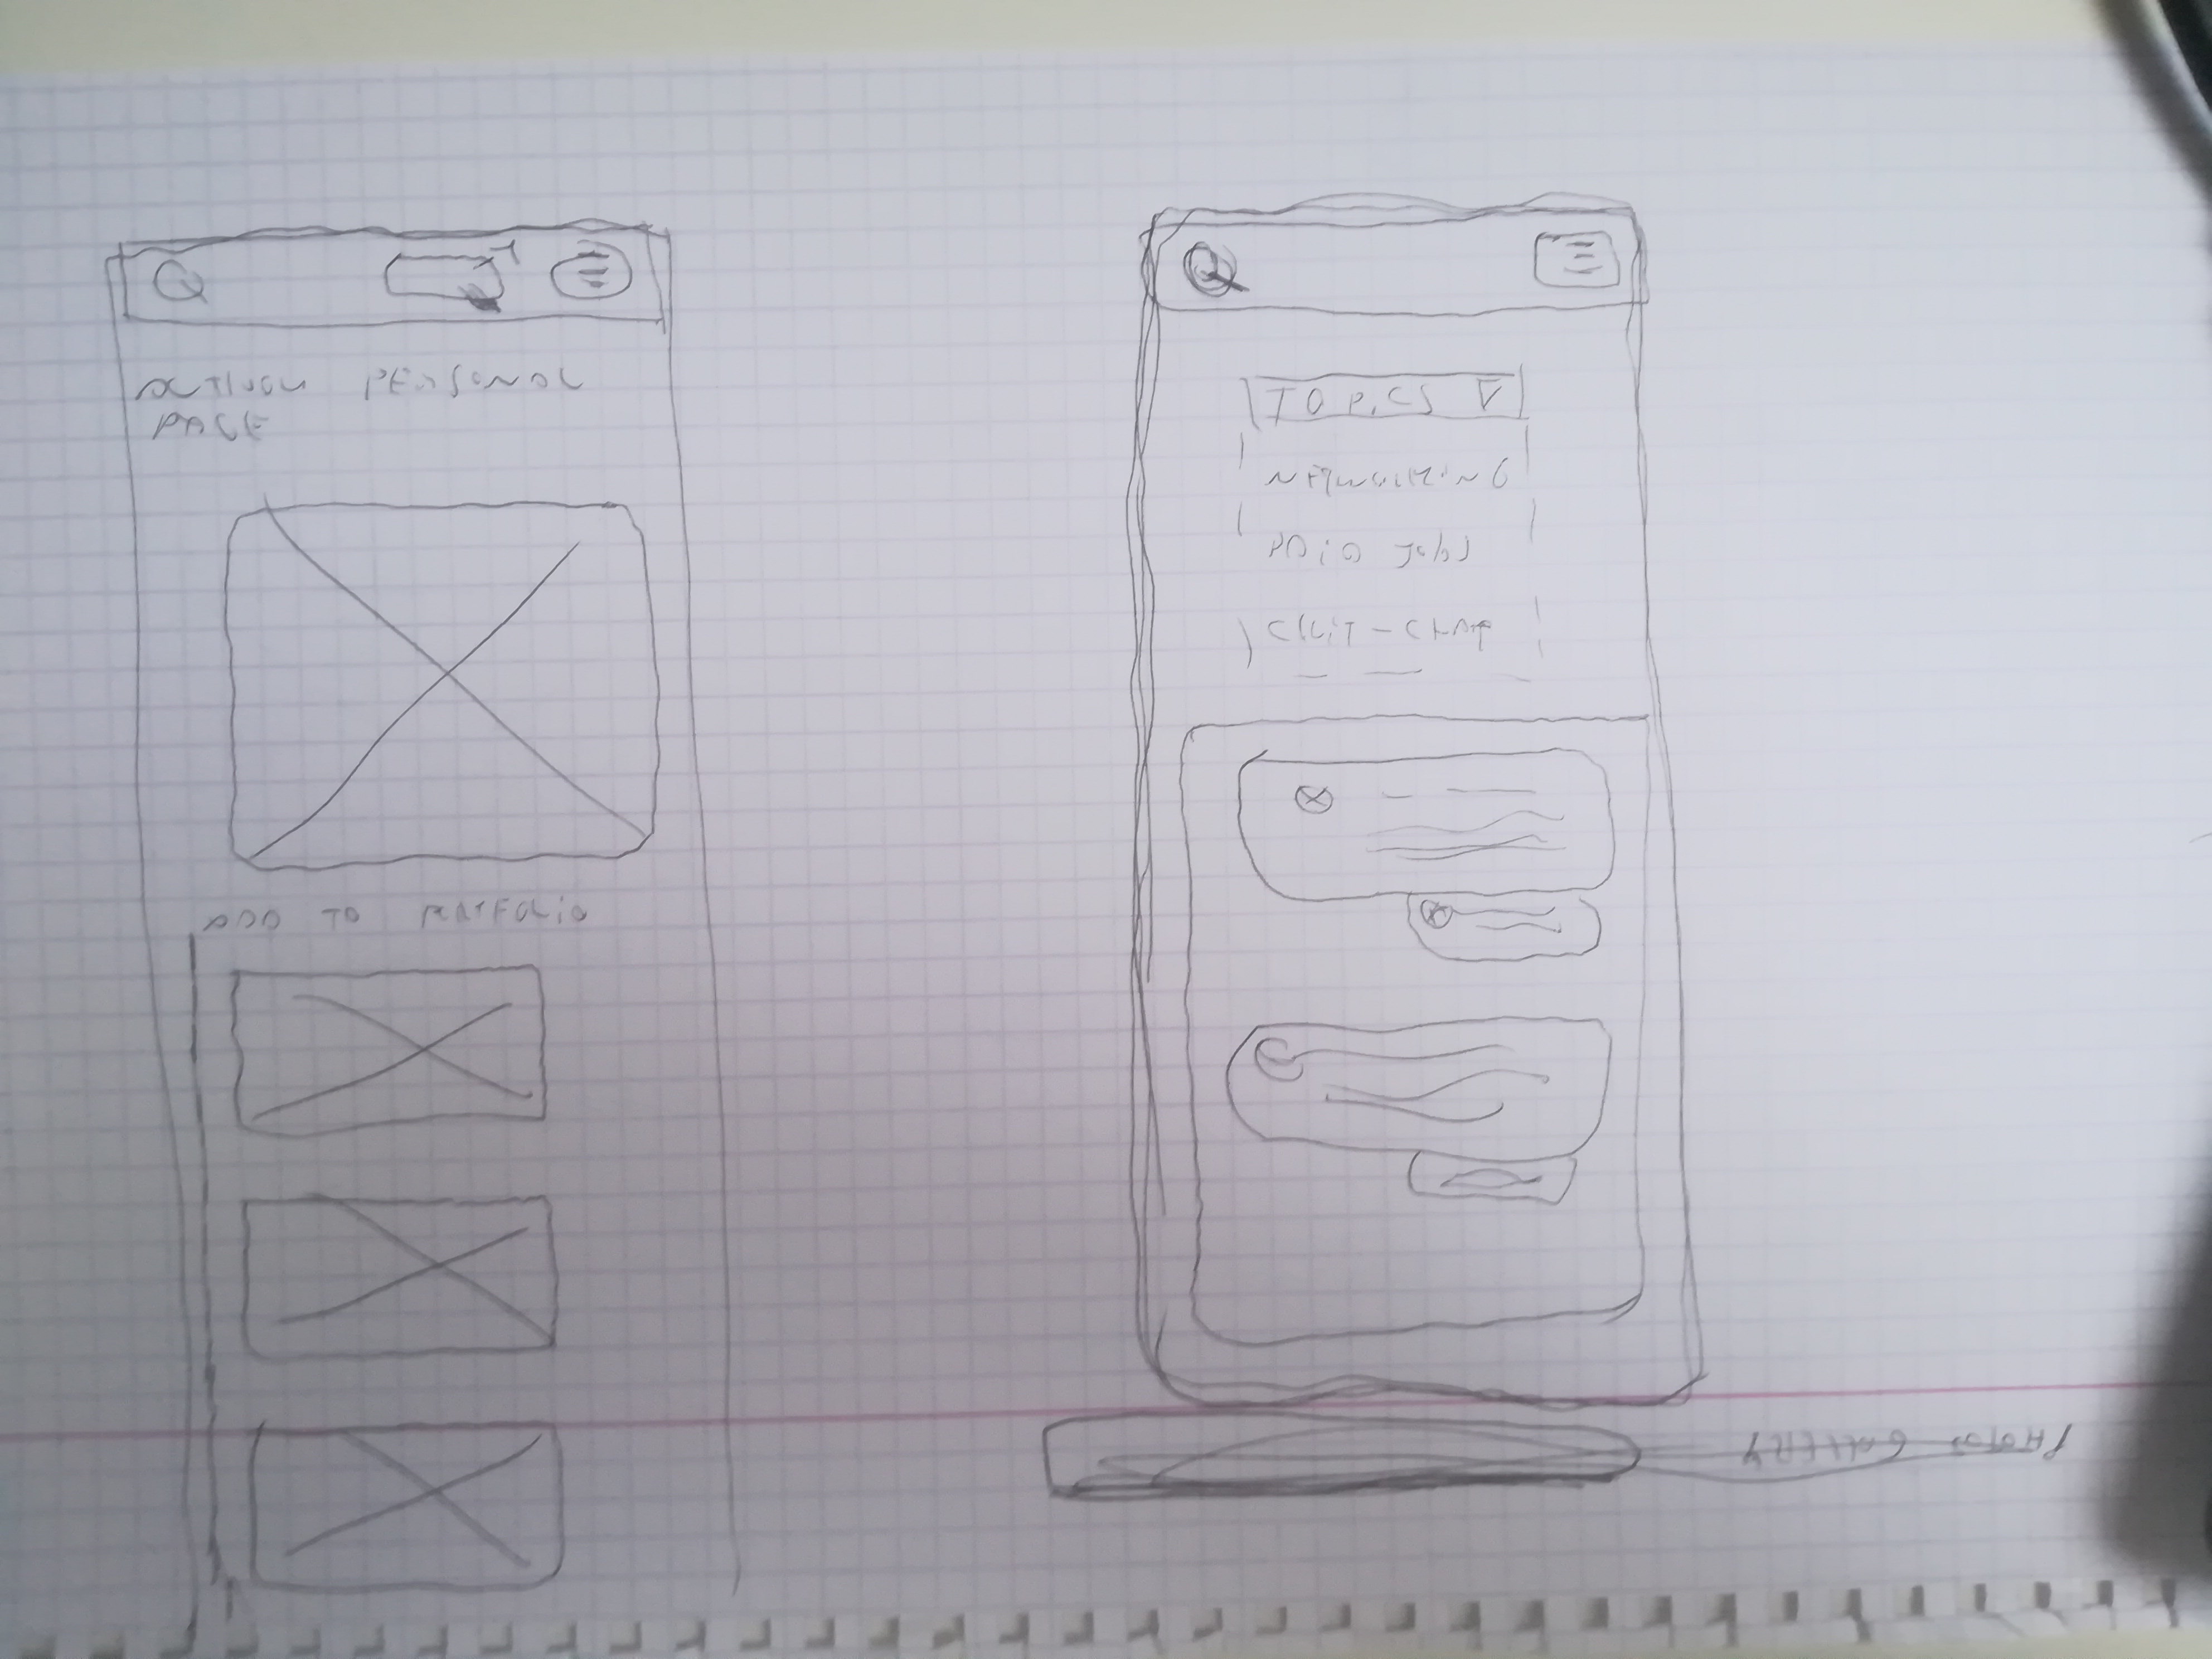 PERSONAL
PAGE
ADD TO PORTFOLIO
TOPICS
NETWORKING
PAID JOBS
CHIT-CHAT
PHOTOS GALLERY